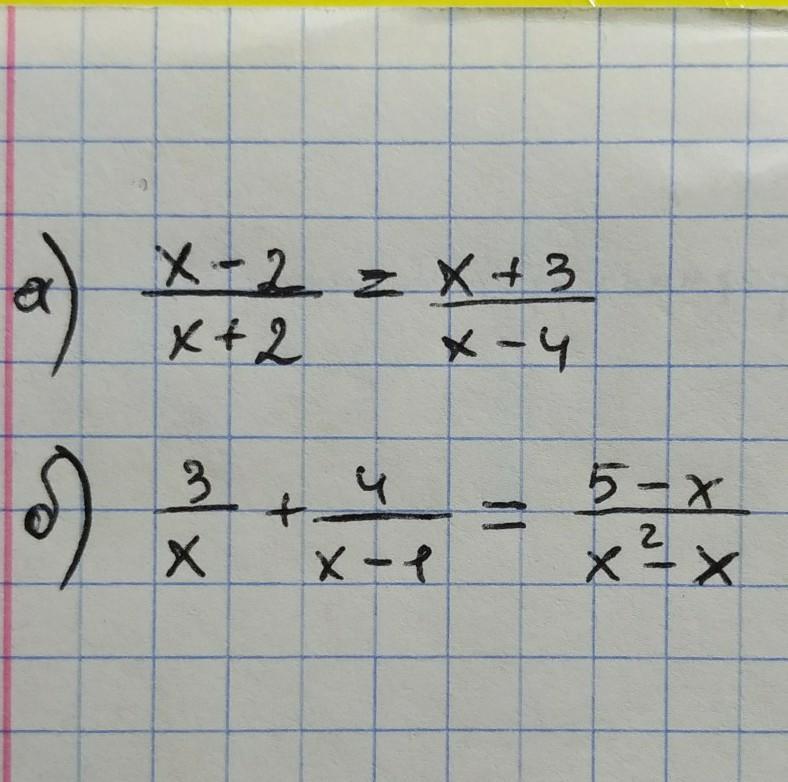 а) (x - 2)/(x + 2) = (x + 3)/(x - 4)
б) 3/x + 4/(x - 1) = (5 - x)/(x² - x)